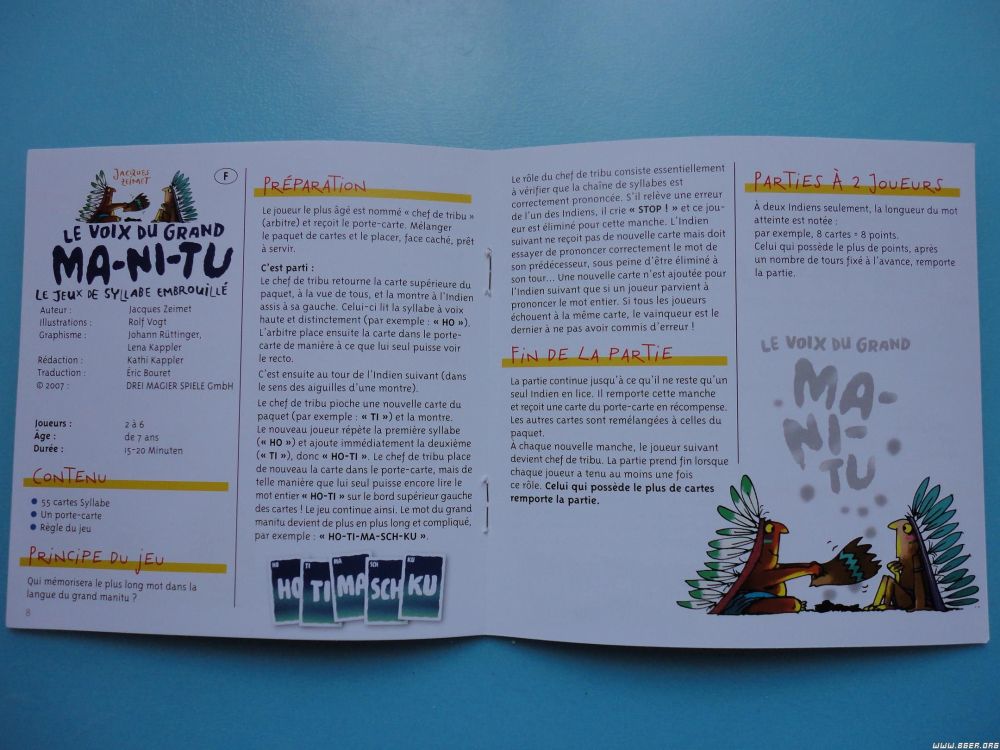 Jacques
Zeimet
F
LE VOIX DU GRAND
MA-NI-TU
LE JEUX DE SYLLABE EMBROUILLÉ
Auteur : Jacques Zeimet
Illustrations : Rolf Vogt
Graphisme : Johann Rüttinger,
Lena Kappler
Rédaction : Kathi Kappler
Traduction : Éric Bouret
© 2007 : DREI MAGIER SPIELE GmbH
Joueurs : 2 à 6
Âge : de 7 ans
Durée : 15-20 Minuten
CONTENU
• 55 cartes Syllabe
• Un porte-carte
• Règle du jeu
PRINCIPE DU JEU
Qui mémorisera le plus long mot dans la
langue du grand manitu ?
8
PRÉPARATION
Le joueur le plus âgé est nommé « chef de tribu »
(arbitre) et reçoit le porte-carte. Mélanger
le paquet de cartes et le placer, face caché, prêt
à servir.
C'est parti :
Le chef de tribu retourne la carte supérieure du
paquet, à la vue de tous, et la montre à l'Indien
assis à sa gauche. Celui-ci lit la syllabe à voix
haute et distinctement (par exemple : « HO »).
L'arbitre place ensuite la carte dans le porte-
carte de manière à ce que lui seul puisse voir
le recto.
C'est ensuite au tour de l'Indien suivant (dans
le sens des aiguilles d'une montre).
Le chef de tribu pioche une nouvelle carte du
paquet (par exemple : « TI ») et la montre.
Le nouveau joueur répète la première syllabe
(« HO ») et ajoute immédiatement la deuxième
(« TI »), donc « HO-TI ». Le chef de tribu place
de nouveau la carte dans le porte-carte, mais de
telle manière que lui seul puisse encore lire le
mot entier « HO-TI » sur le bord supérieur gauche
des cartes ! Le jeu continue ainsi. Le mot du grand
manitu devient de plus en plus long et compliqué,
par exemple : « HO-TI-MA-SCH-KU ».
HO TI MA SCH KU
HO TI MA SCH KU
Le rôle du chef de tribu consiste essentiellement
à vérifier que la chaîne de syllabes est
correctement prononcée. S'il relève une erreur
de l'un des Indiens, il crie « STOP ! » et ce jou-
eur est éliminé pour cette manche. L'Indien
suivant ne reçoit pas de nouvelle carte mais doit
essayer de prononcer correctement le mot de
son prédécesseur, sous peine d'être éliminé à
son tour... Une nouvelle carte n'est ajoutée pour
l'Indien suivant que si un joueur parvient à
prononcer le mot entier. Si tous les joueurs
échouent à la même carte, le vainqueur est le
dernier à ne pas avoir commis d'erreur !
FIN DE LA PARTIE
La partie continue jusqu'à ce qu'il ne reste qu'un
seul Indien en lice. Il remporte cette manche
et reçoit une carte du porte-carte en récompense.
Les autres cartes sont remélangées à celles du
paquet.
À chaque nouvelle manche, le joueur suivant
devient chef de tribu. La partie prend fin lorsque
chaque joueur a tenu au moins une fois
ce rôle. Celui qui possède le plus de cartes
remporte la partie.
PARTIES À 2 JOUEURS
À deux Indiens seulement, la longueur du mot
atteinte est notée :
par exemple, 8 cartes = 8 points.
Celui qui possède le plus de points, après
un nombre de tours fixé à l'avance, remporte
la partie.
LE VOIX DU GRAND
MA-
NI-
TU
WWW.BGER.ORG